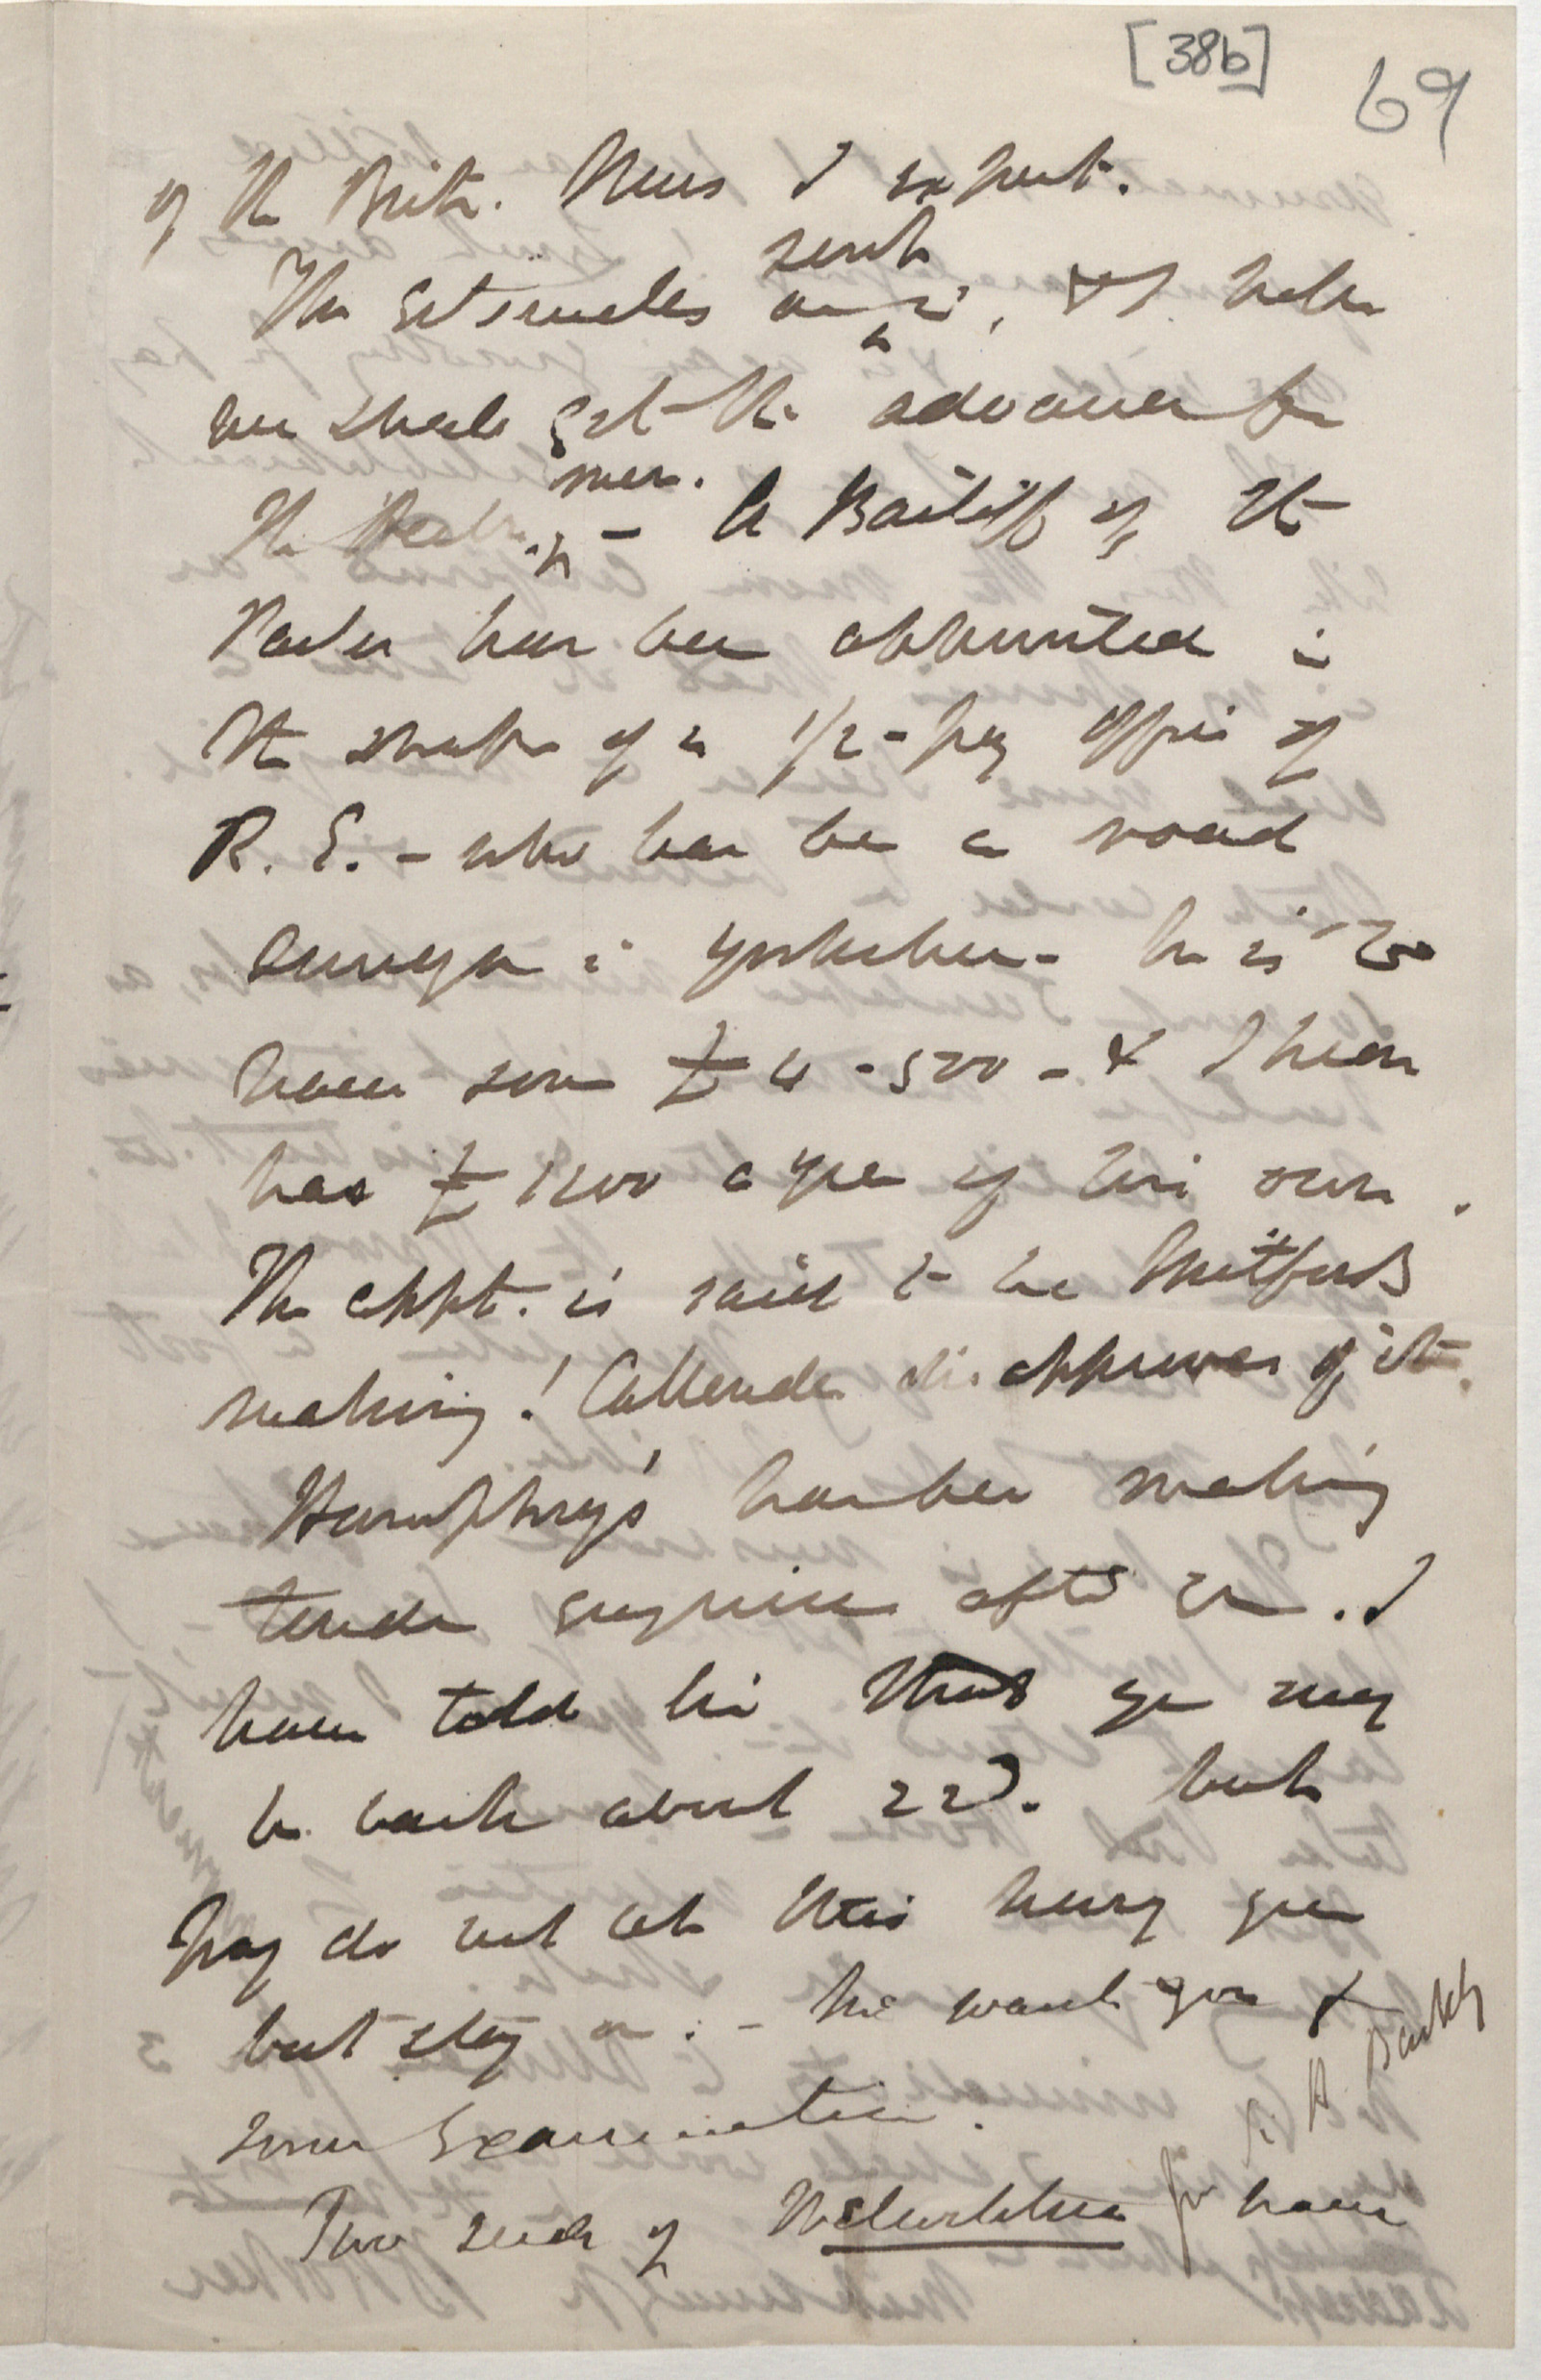 [38b] 69
of the Brit. Mus I expect.
The Estimates are sent in, & I hope
we shall get the advance for
the Herbm. men. – A Bailiff of the
Parks has been appointed in
the shape of a 1/2-pay Offr of
R. E. – who has been a road
surveyor in Yorkshire – he is to
have some £4-500 – & I hear
has £1200 a year of his own.
The appt. is said to be Mitfords
making! Callender disapproves of it.
Humphry's has been making
tender enquiries after you. I
have told him that you may
be back about 22d. but
pray do not let this hurry you
but stay on. – he wants you &
some Examination.
Two seeds of Welwitschia for Sir H. Barkly have